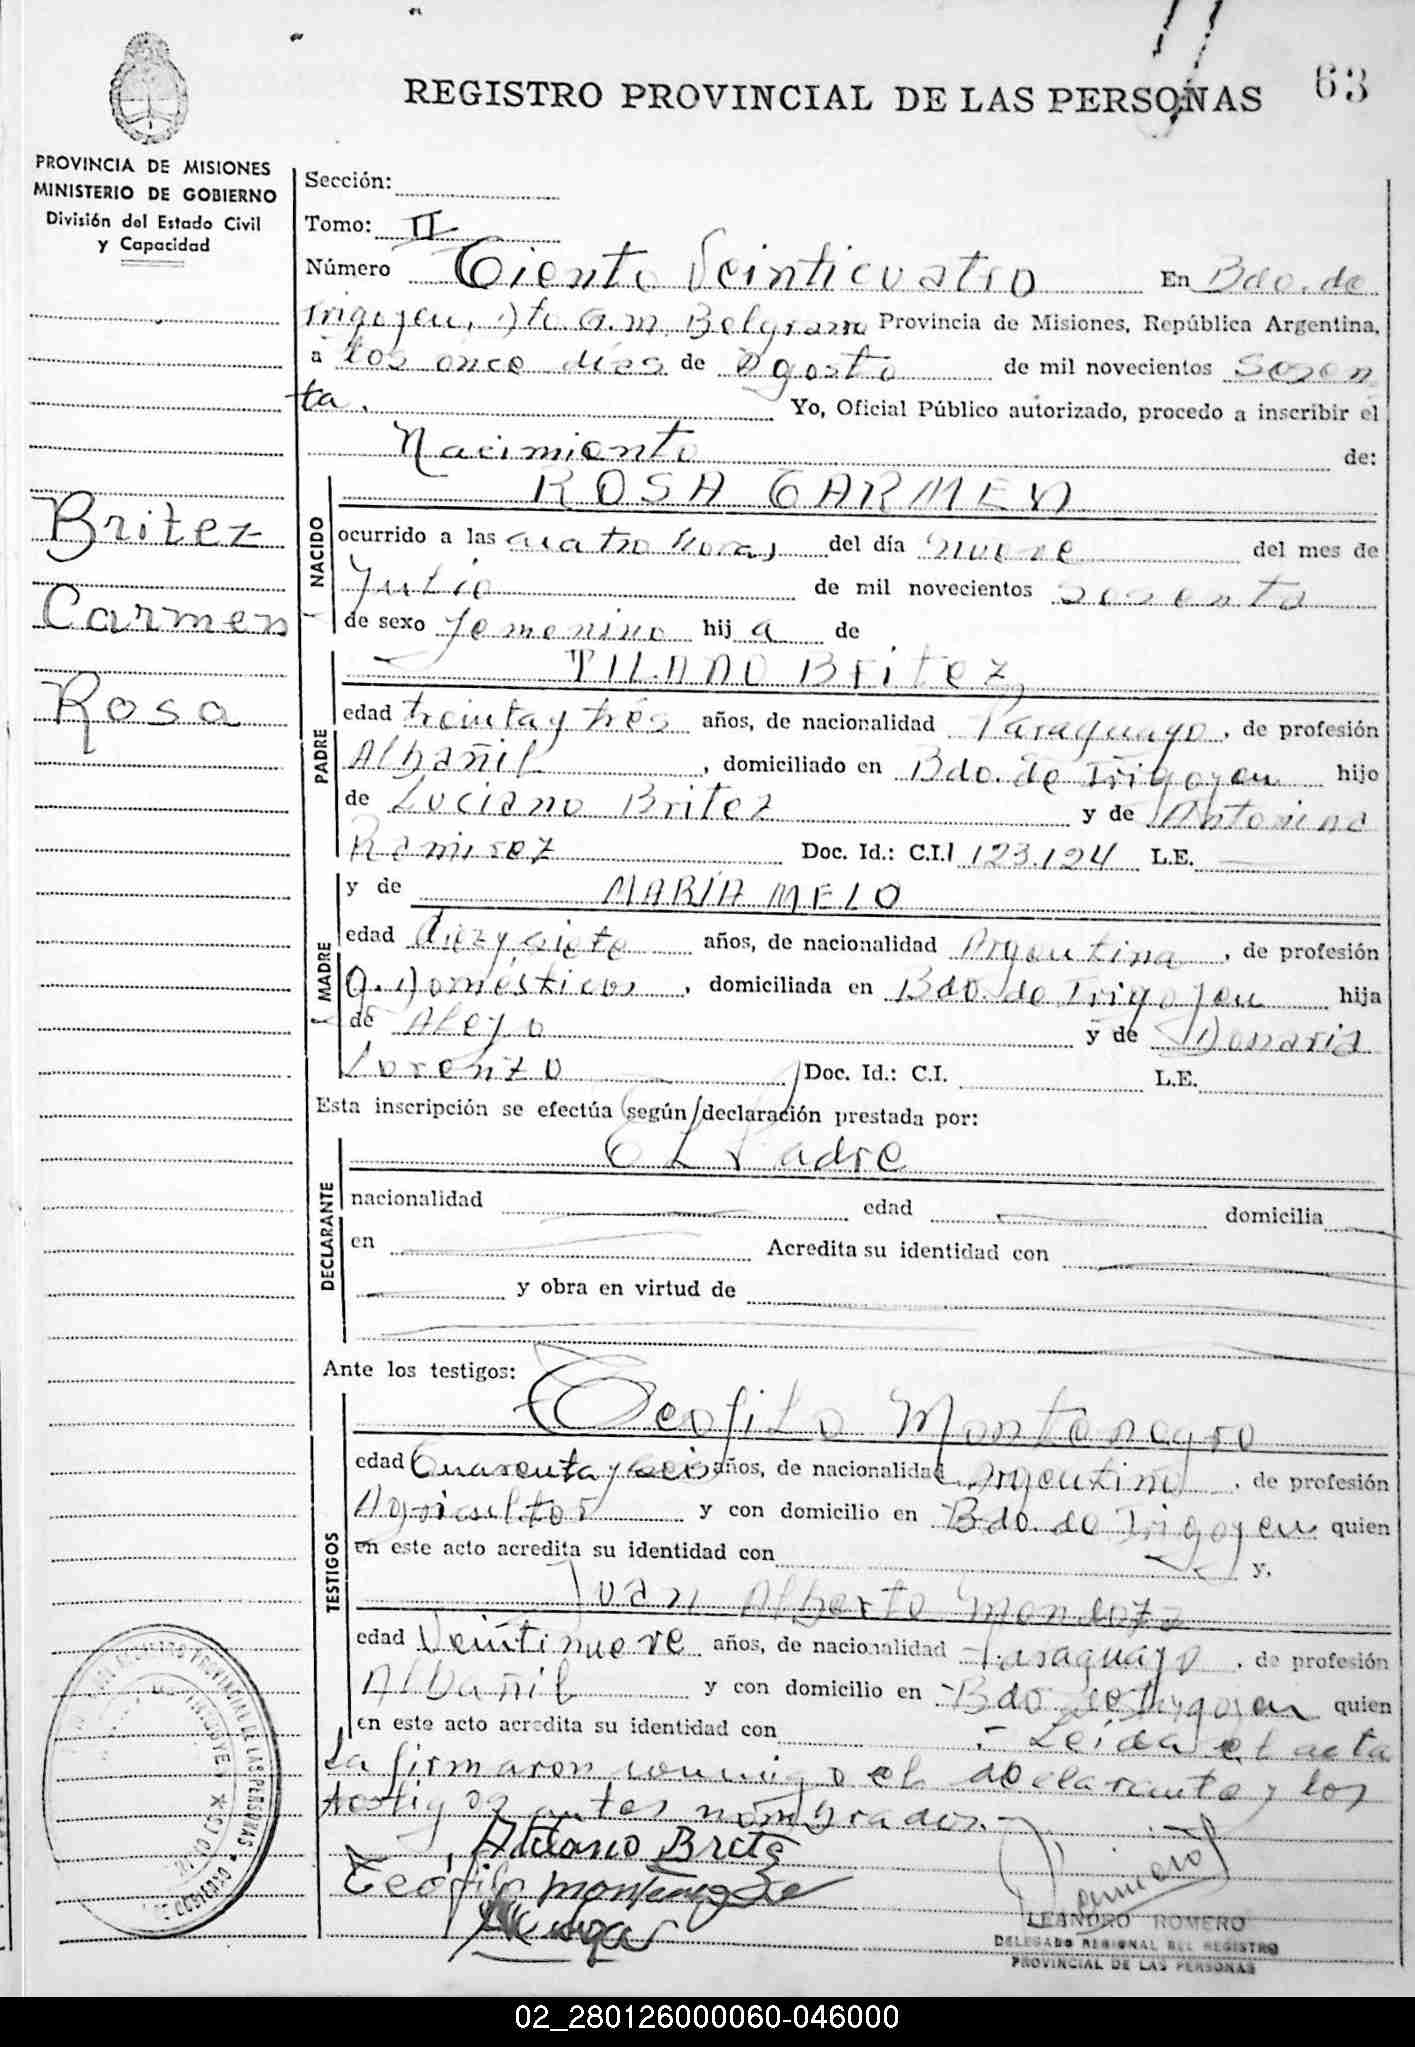 REGISTRO PROVINCIAL DE LAS PERSONAS
63
PROVINCIA DE MISIONES
MINISTERIO DE GOBIERNO
División del Estado Civil
y Capacidad
Sección:
Tomo: II
Número Ciento Veinticuatro En Bdo. de
Irigoyen, Dto G.M. Belgrano Provincia de Misiones, República Argentina,
a los once días de Agosto de mil novecientos sesen
ta. Yo, Oficial Público autorizado, procedo a inscribir el
Nacimiento de:
Britez
Carmen
Rosa
NACIDO
ROSA CARMEN
ocurrido a las cuatro horas del día nueve del mes de
Julio de mil novecientos sesenta
de sexo femenino hij a de
PADRE
TILANO Britez
edad treinta y trés años, de nacionalidad Paraguayo, de profesión
Albañil, domiciliado en Bdo. de Irigoyen hijo
de Luciano Britez y de Antonina
Ramirez Doc. Id.: C.I. 123.124 L.E.
MADRE
y de MARIA MELO
edad diez y siete años, de nacionalidad Argentina, de profesión
Q. Domésticos, domiciliada en Bdo. de Irigoyen hija
de Aleyo y de Donaria
Lorenzo Doc. Id.: C.I. L.E.
Esta inscripción se efectúa según declaración prestada por:
DECLARANTE
El Padre
nacionalidad edad domicilia
en Acredita su identidad con
y obra en virtud de
Ante los testigos:
TESTIGOS
Teofilo Montenegro
edad Cuarenta y seis años, de nacionalidad Argentino, de profesión
Agricultor y con domicilio en Bdo. de Irigoyen quien
en este acto acredita su identidad con y,
Juan Alberto Mendoza
edad Veintinueve años, de nacionalidad Paraguayo, de profesión
Albañil y con domicilio en Bdo de Irigoyen quien
en este acto acredita su identidad con - Leida el acta
La firmaron conmigo el declarante y los
testigos antes nombrados.-
Atilano Britez
Teófilo Montenegro
LEANDRO ROMERO
DELEGADO REGIONAL DEL REGISTRO
PROVINCIAL DE LAS PERSONAS
02_280126000060-046000